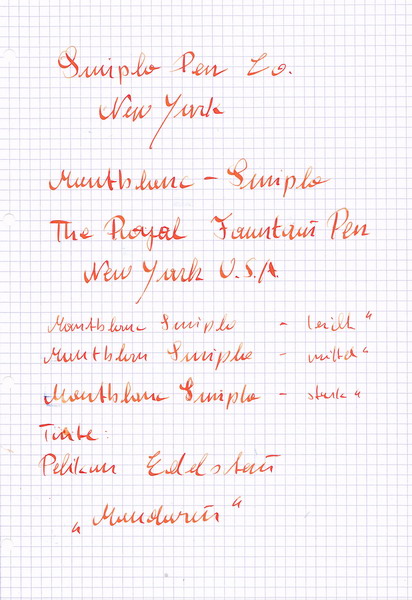 Simplo Pen Co.
New York
Montblanc - Simplo
The Royal Fountain Pen
New York U.S.A.
Montblanc Simplo - leicht"
Montblanc Simplo - mittel"
Montblanc Simplo - stark"
Tinte:
Pelikan Edelstein
„Mandarin"